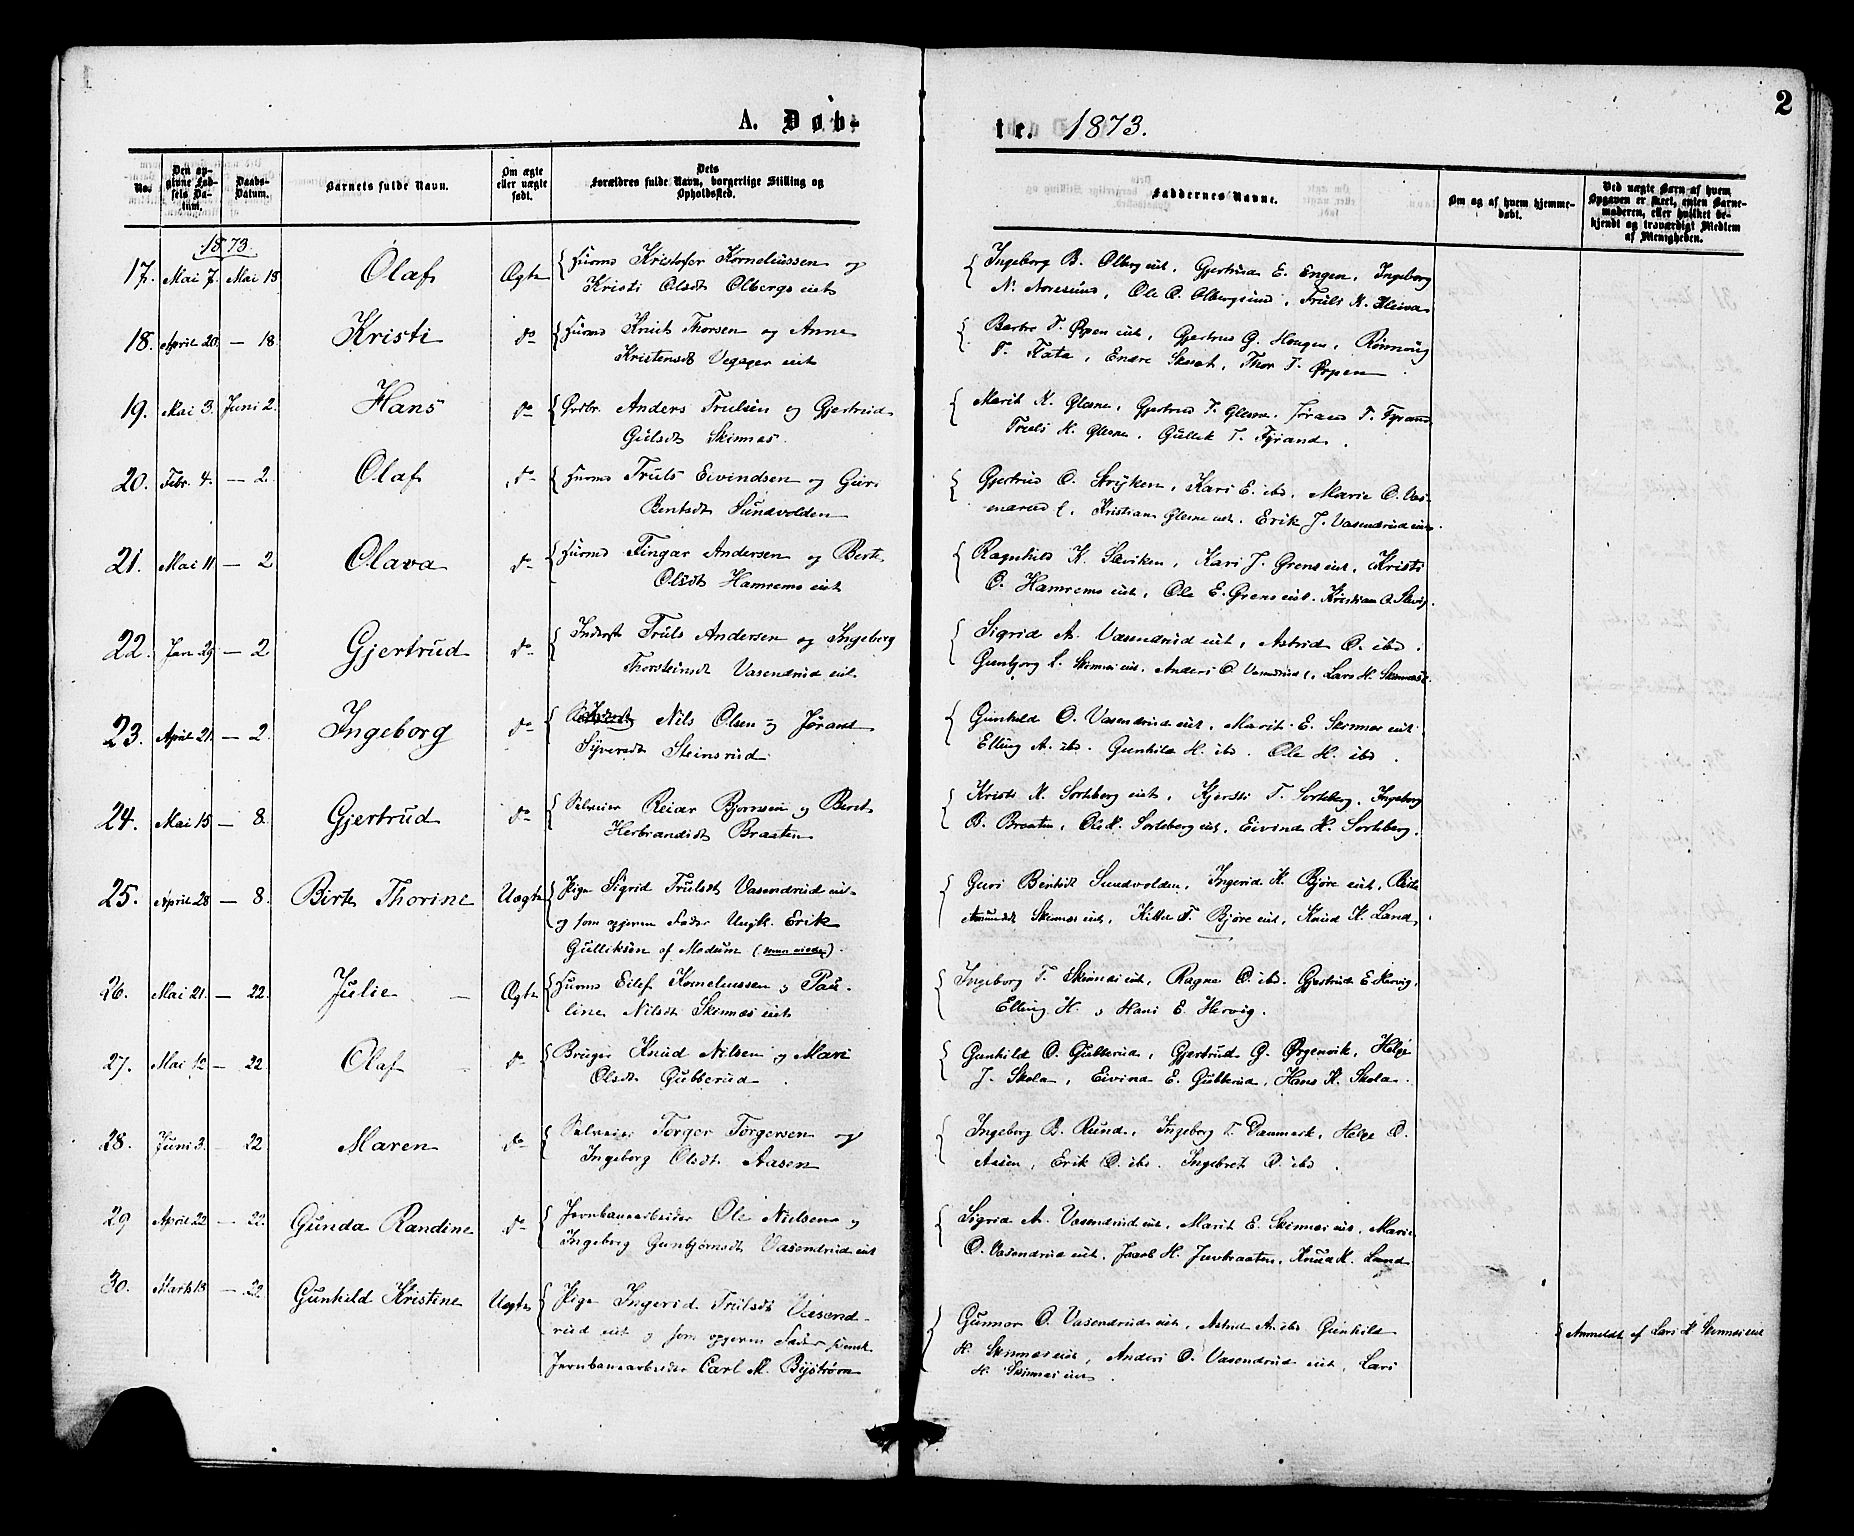 2
A. Døb-
te. 1873.
No. Den opgivne Fødsels Datum. Daabs-Datum. Barnets fulde Navn. Om ægte eller uægte født. Dets Forældres fulde Navn, borgerlige Stilling og Opholdssted.
Faddernes Navne. Om og af hvem hjemmedøbt. Ved uægte Barn af hvem Opgaven er skeet, enten Barnemoderen, eller hvilket bekjendt og troværdigt Medlem af Menigheden.
1873.
17. Mai 7. Mai 18 Olaf Ægte Kristofer Korneliussen og
Kristi Olsdt Olbergs eiet
Ingeborg B. Olberg eiet, Gjertrud E. Engen, Ingeborg
N. Noresund, Ole O. Olbergsund, Truls K.
18. April 20. — 18. Kristi do Knut Thorsen og Anne
Kristensdt Vegager eiet
T. Ørpen eiet, Gjertrud G. Haugen, Rønnaug
T. Kata, Endre Skaret, Thor T. Ørpen
19. Mai 3. Juni 2. Hans do Grdbr. Anders Trulsen og Gjertrud
Gulsdt Skinnes.
Marit K. Glesne, Gjertrud T. Glesne, Jørand T. Fyrand
Truls K. Glesne, Gullik T. Fyrand.
20. Febr. 4. — 2. Olaf do Truls Eivindsen og Guri
Bentsdt Sundvolden
Gjertrud O. Stryken, Kari E. ibd, Marie O. Vas-
enrud, Kristian Glesne eiet, Erik J. Vasendrud eiet
21. Mai 11 — 2 Olava do Fingar Andersen og Berte
Olsdt Hamrems eiet
Ragnhild K. Sævíken, Kari J. Grens eiet, Kristi
O. Hamrems eiet, Ole E. Grens eiet. Kristian O.
22. Jan 29 — 2 Gjertrud do Inderst Truls Andersen og Ingeborg
Thorsteinsdt Vasendrud eiet
Sigrid A. Vasendrud eiet, Astrid O. ibd.
Gunbjørg L. Skinnes eiet. Anders O. Vasendrud, Lars H. Skinnes
23. April 21. — 2. Ingeborg do Nils Olsen og Jørand
Syversdt Steinsrud.
Gunhild O. Vasendrud eiet, Marit E. Skinnes eiet
Elling A. ibd. Gunhild H. ibd. Ole H. ibd.
24. Mai 15 — 8. Gjertrud do Selveier Reiar Bjørnsen og Berit
Herbrandsdt Braaten
Kristi K. Sorteberg eiet, Kjersti T. Sorteberg, Ingeborg
B. Braaten, Ole K. Sorteberg eiet, Eivind K. Sorteberg.
25. April 28 — 8. Birte Thorine Uægte Pige Sigrid Trulsdt Vasendrud eiet
og som opgiven Fader Ungk. Erik
Gulliksen af Modum
Guri Bentsdt Sundvolden, Ingerid K. Bjøre eiet,
Skinnes eiet, Kittel T. Bjøre eiet, Knud K. Land
26. Mai 21. — 22. Julie Ægte Eilef Korneliussen og Pau-
line Nilsdt Skinnes eiet
Ingeborg T. Skinnes eiet, Ragne O. ibd. Gjertrud E. Hervig,
Elling H. og Hans E. Hervig.
27. Mai 12 — 22. Olaf do Bruger Knud Nilsen og Mari
Olsdt Gubberud.
Gunhild O. Gubberud, Gjertrud G. Ørgenvik, Helge
J. Skola, Eivind E. Gubberud, Hans K. Skola.
28. Juni 3. — 22. Maren do Selveier Torger Torgersen og
Ingeborg Olsdt Aasen
Ingeborg B. Rund, Ingeborg T. Danmark, Helge O.
Aasen, Erik O. ibd. Ingebret O. ibd.
29 April 22 — 22. Gunda Randine do Jernbanearbeider Ole Nielsen og
Ingeborg Gunbjørnsdt Vasendrud eiet
Sigrid A. Vasendrud eiet, Marit E. Skinnes eiet, Marie
O. Vasendrud eiet, Jacob H. Juvbraaten, Knud K. Land
30. Marts 18 — 22 Gunhild Kristine Uægte Pige Ingerid Trulsdt Vasend-
rud eiet og som opgiven Fader svensk
Jernbanearbeider Carl M. Bystrøm
Gunnar O. Vasendrud eiet, Astrid A. ibd Gunhild
H. Skinnes eiet, Anders O. Vasendrud eiet, Lars
H. Skinnes eiet
Anmeldt af Lars H. Skinnes eiet